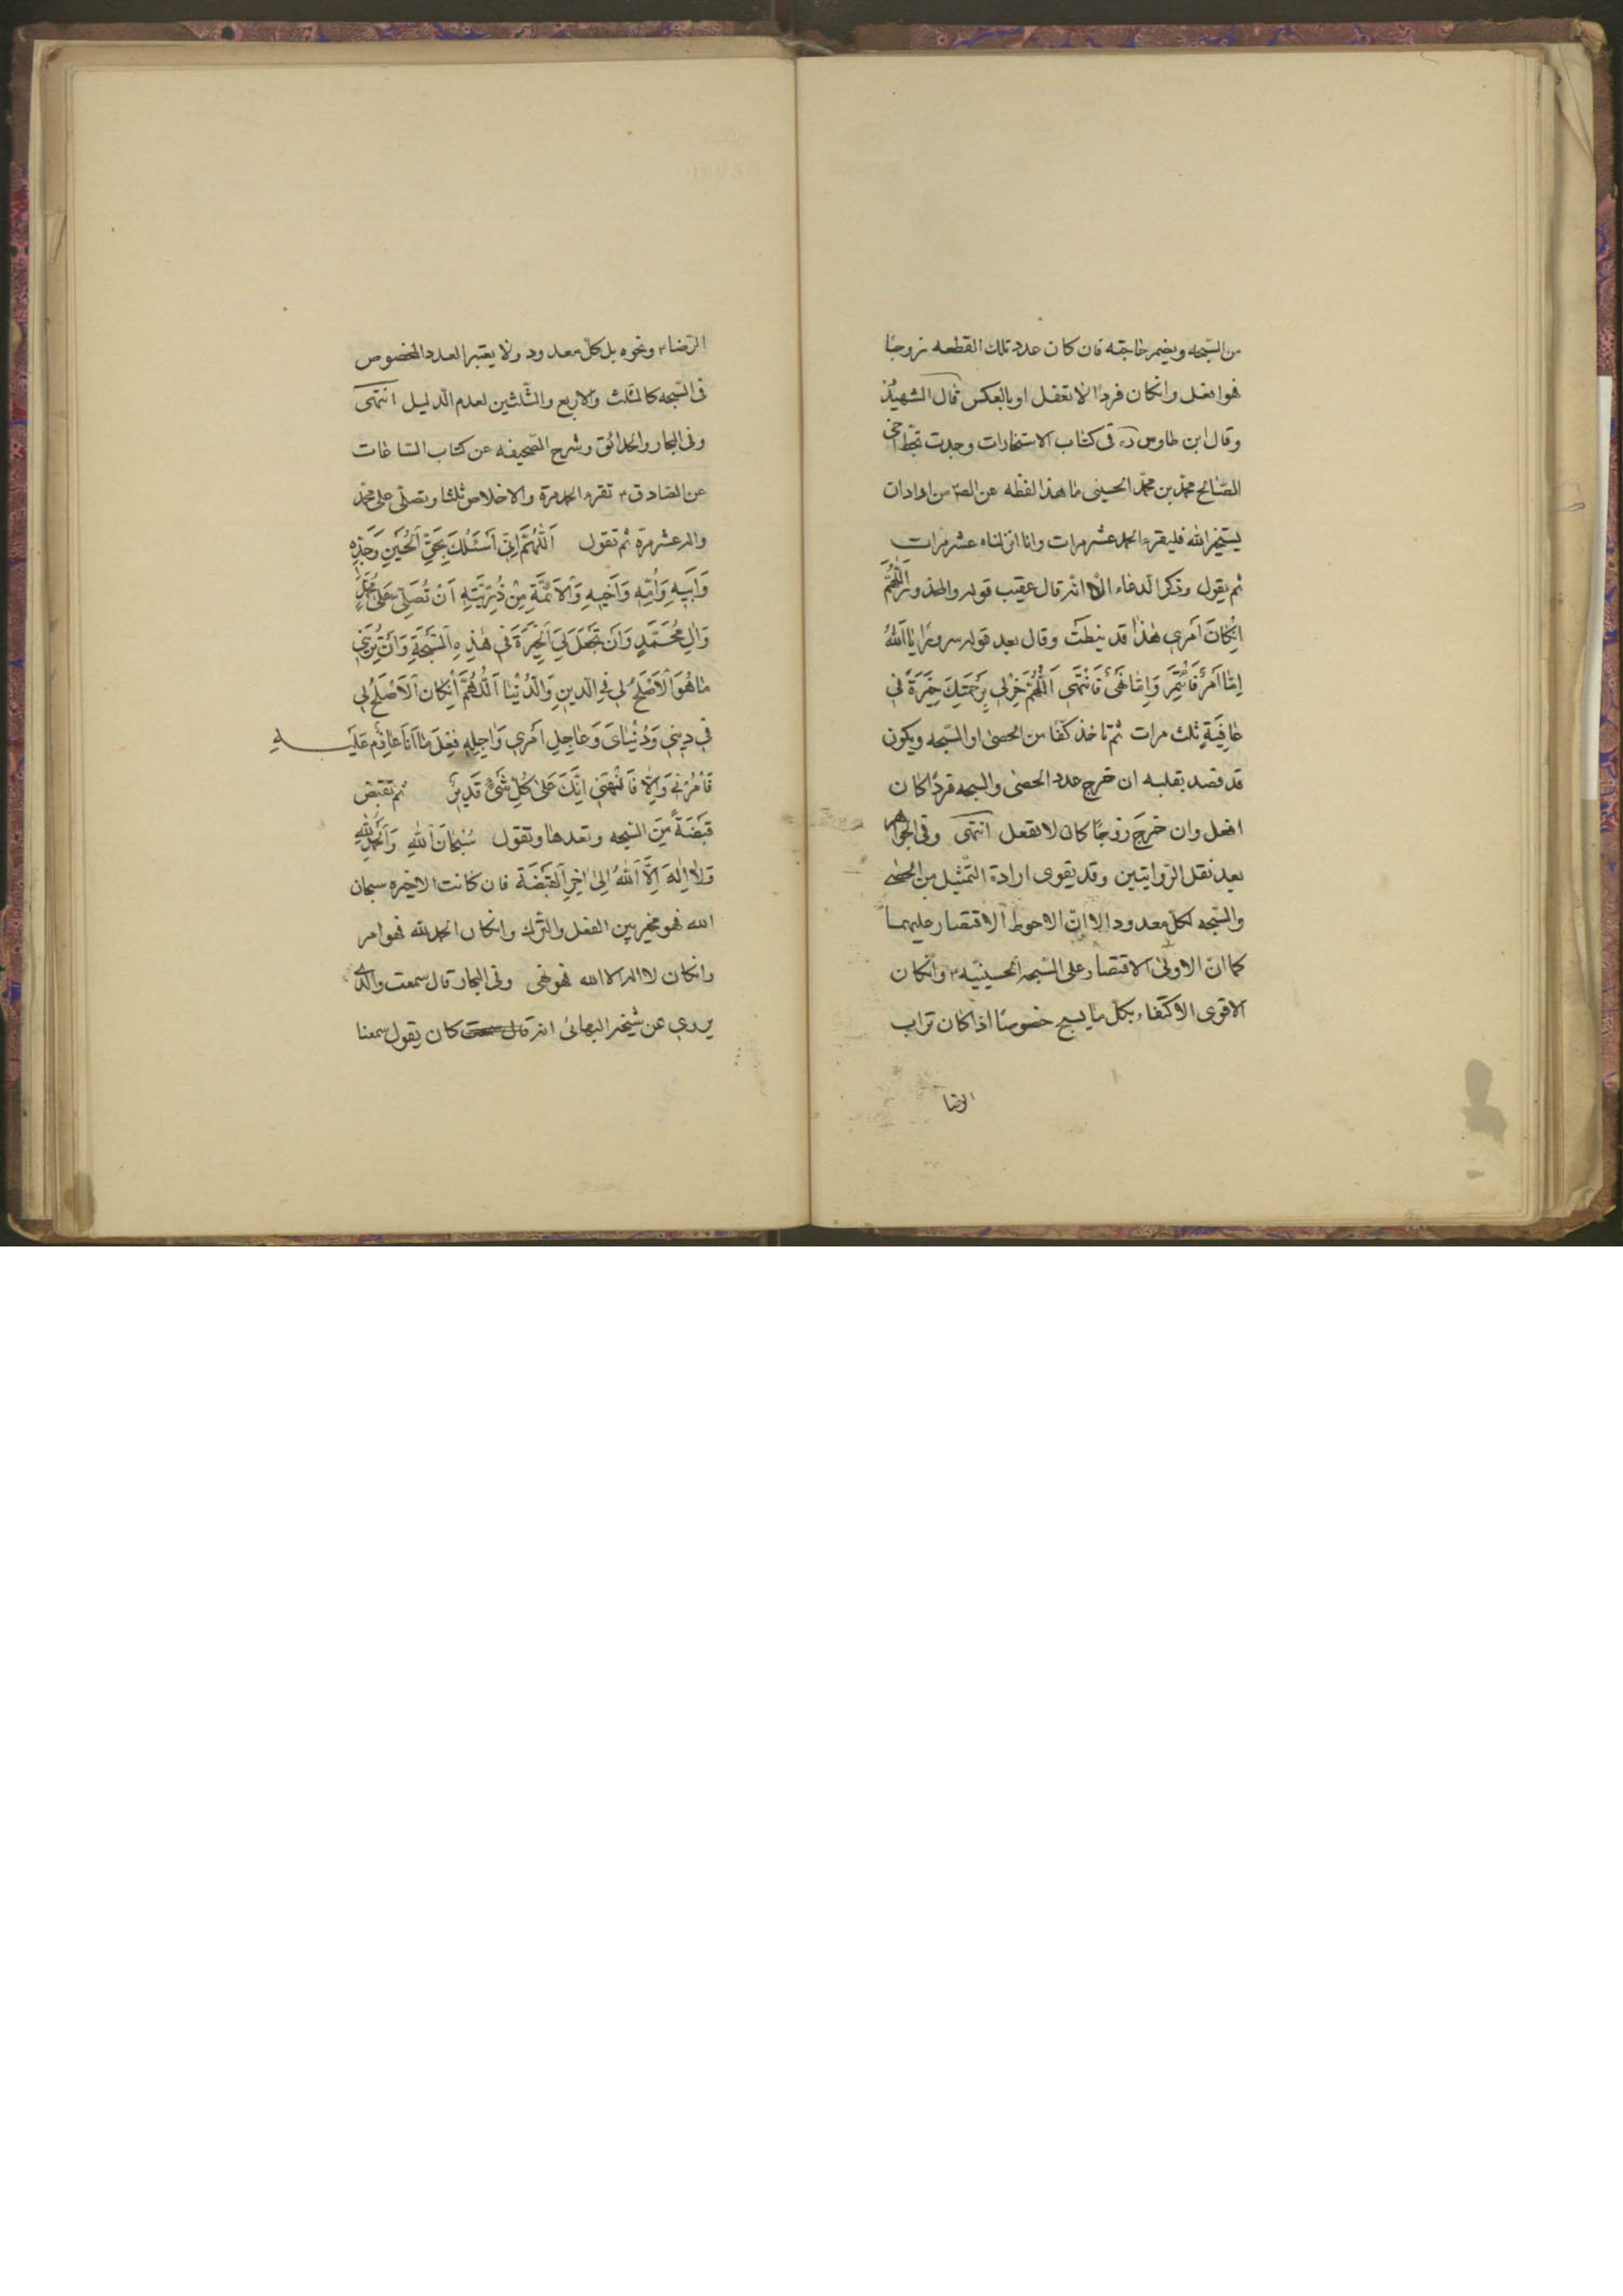 من السبحه ويضمر حاجته فان كان عدد تلك القطعه زوجًا
فهو افعل وانكان فردًا لا تفعل او بالعكس قال الشهيد
وقال ابن طاوس ره فى كتاب الاستخارات وجدت بخط اخى
الصّالح محمّد بن محمّد الحسينى ما هذا لفظه عن الصّ من اراد ان
يستخير الله فليقرء الحمد عشر مرات وانا انزلناه عشر مرات
ثم يقول وذكر الدعاء الّا انه قال عقيب قوله والمحذور اَللّٰهُمَّ
اِنْكانَ اَمْرى هٰذا قد نيطَتْ وقال بعد قوله سرورًا يا اَللّٰهُ
اِمّا اَمْرٌ فَأْتَمِرَ وَاِمّا نَهْىٌ فَاَنْتَهى اَللّٰهُمَّ خِرْلى بِرَحْمَتِكَ خِيَرَةً فى
عٰافِيَةٍ ثلث مرات ثم تاخذ كفّا من الحصى او السّبحه ويكون
قد قصد بقلبه ان خرج عدد الحصى والسبحه فردًا كان
افعل وان خرجَ زوجًا كان لا تفعل انتهى وفى الجواهر
بعد نقل الرّوايتين وقد يقوى ارادة التّمثيل من الحصى
والسّبحه لكل معدود الا انّ الاحوط الاقتصار عليهما
كما انّ الاولى الاقتصار على السّبحه الحسينيّه ٤ وانكان
الاقوى الاكتفاء بكلّ ما يسبح خصوصًا اذا كان تراب
الرضا
الرّضا ٤ ونحوه بل كلّ معدود ولا يعتبر العدد المخصوص
فى السّبحه كالثلث والاربع والثّلثين لعدم الدّليل انتهى
وفى البحار والحدائق وشرح الصّحيفه عن كتاب السّاعات
عن الصّادق ٤ تقرء الحمد مرة والاخلاص ثلثا وتصلّى على محمّد
واله عشر مرّة ثم تقول اَللّٰهُمَّ اِنّى اَسْئَلُكَ بِحَقِّ الْحُسَيْنِ وَجَدِّهِ
وَاَبيهِ وَاُمِّهِ وَاَخيهِ وَالْاَئِمَّةِ مِنْ ذُرِّيَّتِهِ اَنْ تُصَلِّىَ عَلىٰ مُحَمَّدٍ
وَالِ مُحَمَّدٍ وَاَنْ تَجْعَلَ لِىَ الْخِيَرَةَ فى هٰذِهِ السُّبْحَةِ وَاَنْ تُرِيَنى
ما هُوَ الْاَصْلَحُ لى فِى الدّينِ وَالدُّنْيا اَللّٰهُمَّ اِنْكانَ الْاَصْلَحُ لى
فى دينى وَدُنْياىَ وَعاجِلِ اَمْرى وَاٰجِلِهِ فِعْلَ ما اَنَا عازِمٌ عَلَيْهِ
فَأْمُرْنى وَاِلّا فَانْهَنى اِنَّكَ عَلىٰ كُلِّ شَىْءٍ قَديرٌ ثم تقبض
قَبْضَةً مِنَ السّبحه وتعدها وتقول سُبْحانَ اللّٰهِ وَالْحَمْدُ لِلّٰهِ
وَلا اِلٰهَ اِلَّا اللّٰهُ اِلىٰ اخِرِ الْقَبْضَة فان كانت الاخيره سبحان
الله فهو مخير بين الفعل والتّرك وانكان الحمد لله فهو امر
وانكان لا اله الا الله فهو نهى وفى البحار قال سمعت والدى
يروى عن شيخه البهائى انه قال سمعت كان يقول سمعنا